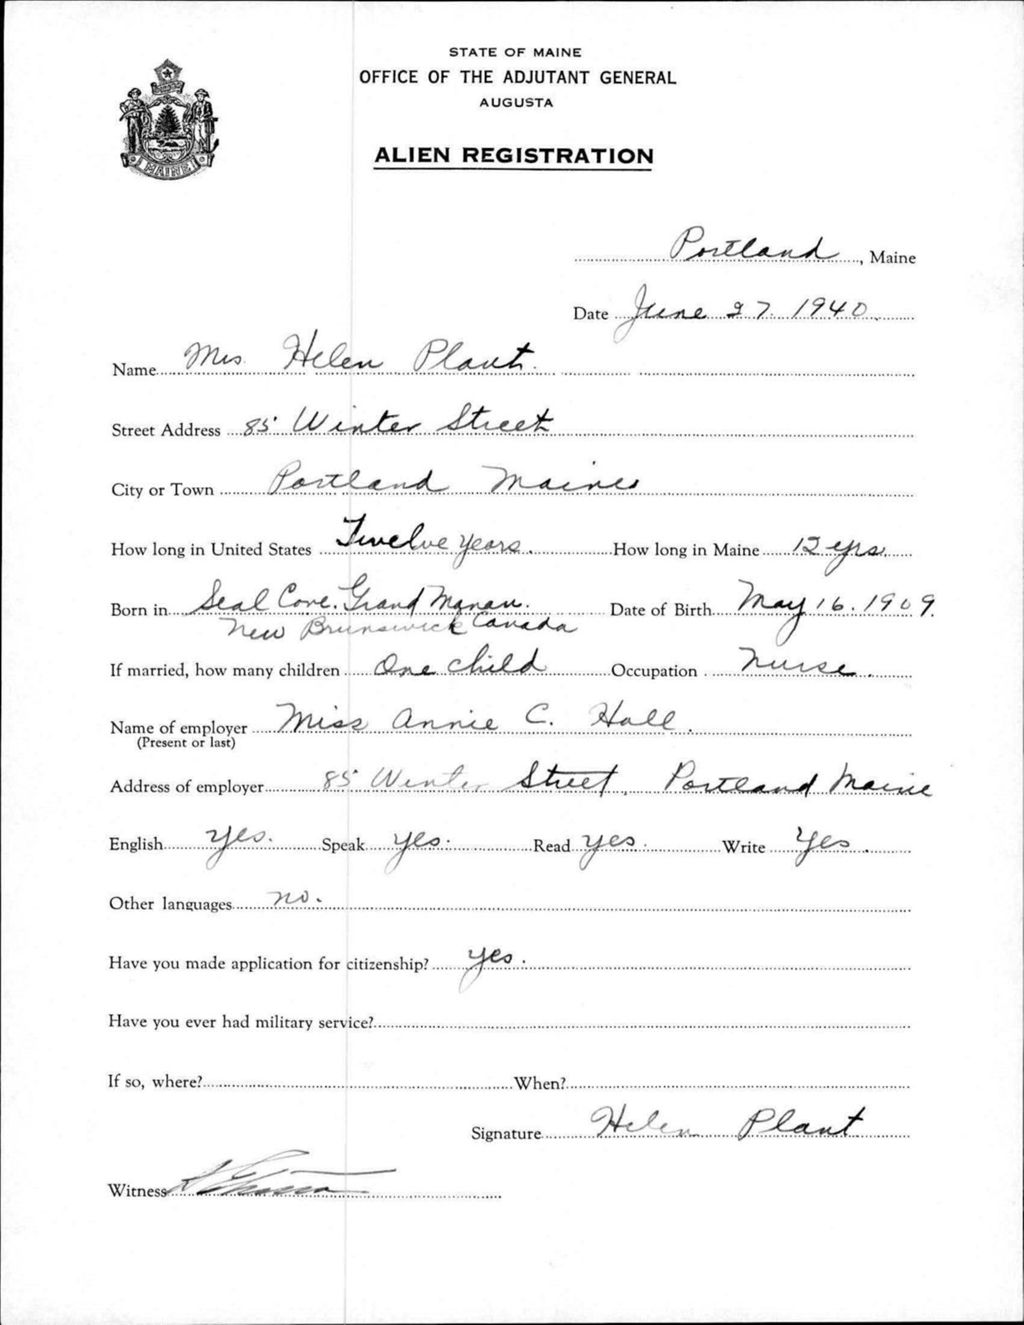 STATE OF MAINE
OFFICE OF THE ADJUTANT GENERAL
AUGUSTA
ALIEN REGISTRATION
MAINE
Portland, Maine
Date June 27. 1940.
Name Mrs. Helen Plant.
Street Address 85 Winter Street
City or Town Portland Maine
How long in United States Twelve years. How long in Maine 12 yrs.
Born in Seal Cove. Grand Manan. Date of Birth May 16. 1909.
New Brunswick Canada
If married, how many children One child Occupation Nurse.
Name of employer Miss Annie C. Hall.
(Present or last)
Address of employer 85 Winter Street, Portland Maine
English yes. Speak yes. Read yes. Write Yes.
Other languages no.
Have you made application for citizenship? yes.
Have you ever had military service?
If so, where? When?
Signature Helen Plant
Witness